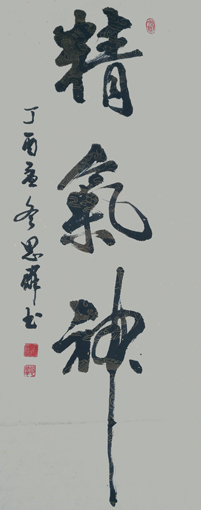 精氣神
丁酉孟冬思辉书